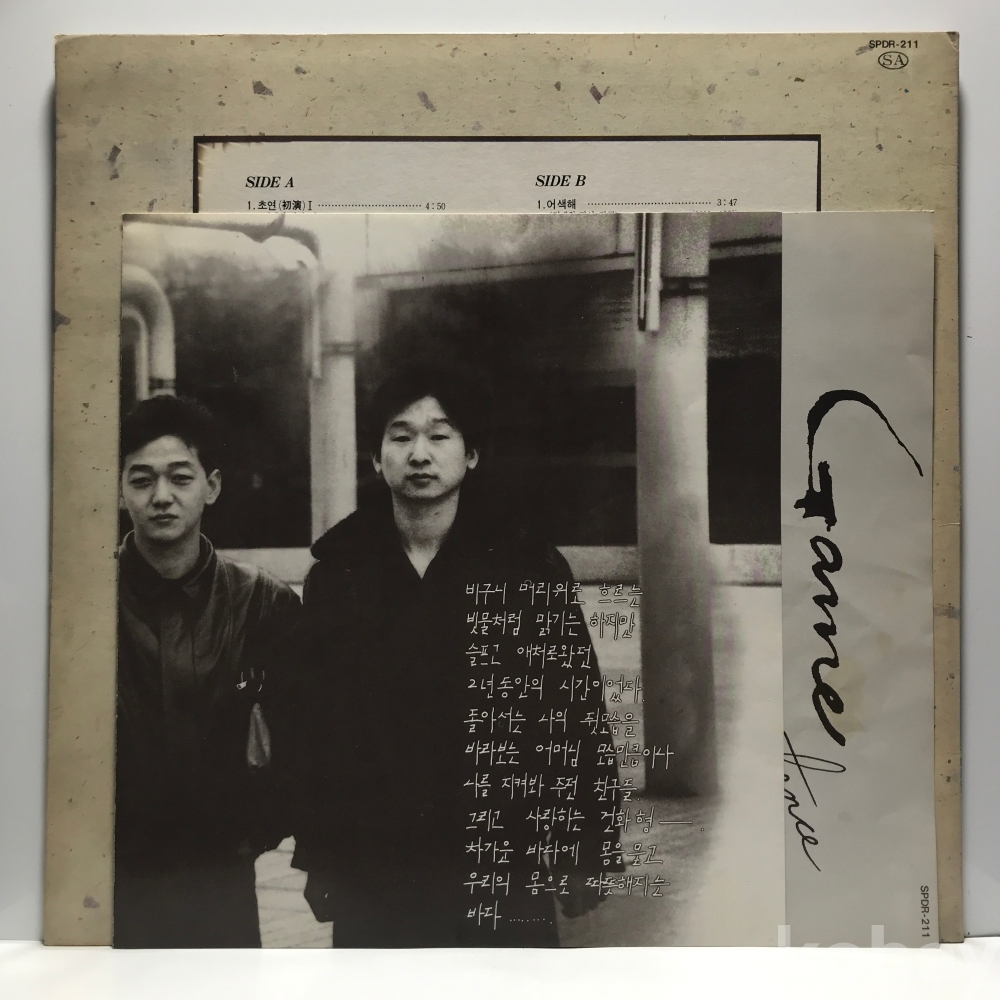 SPDR-211
SA
SIDE A
SIDE B
1.초연(初演)Ⅰ 4:50
1.어색해 3:47
비구니 머리위로 흐르는
빗물처럼 맑기는 하지만
슬프고 애처로왔던
2년동안의 시간이었다.
돌아서는 나의 뒷모습을
바라보는 어머님 모습만큼이나
나를 지켜봐 주던 친구들.
그리고 사랑하는 건화형 ——.
차가운 바다에 몸을 묻고
우리의 몸으로 따뜻해지는
바다 ........
SPDR-211